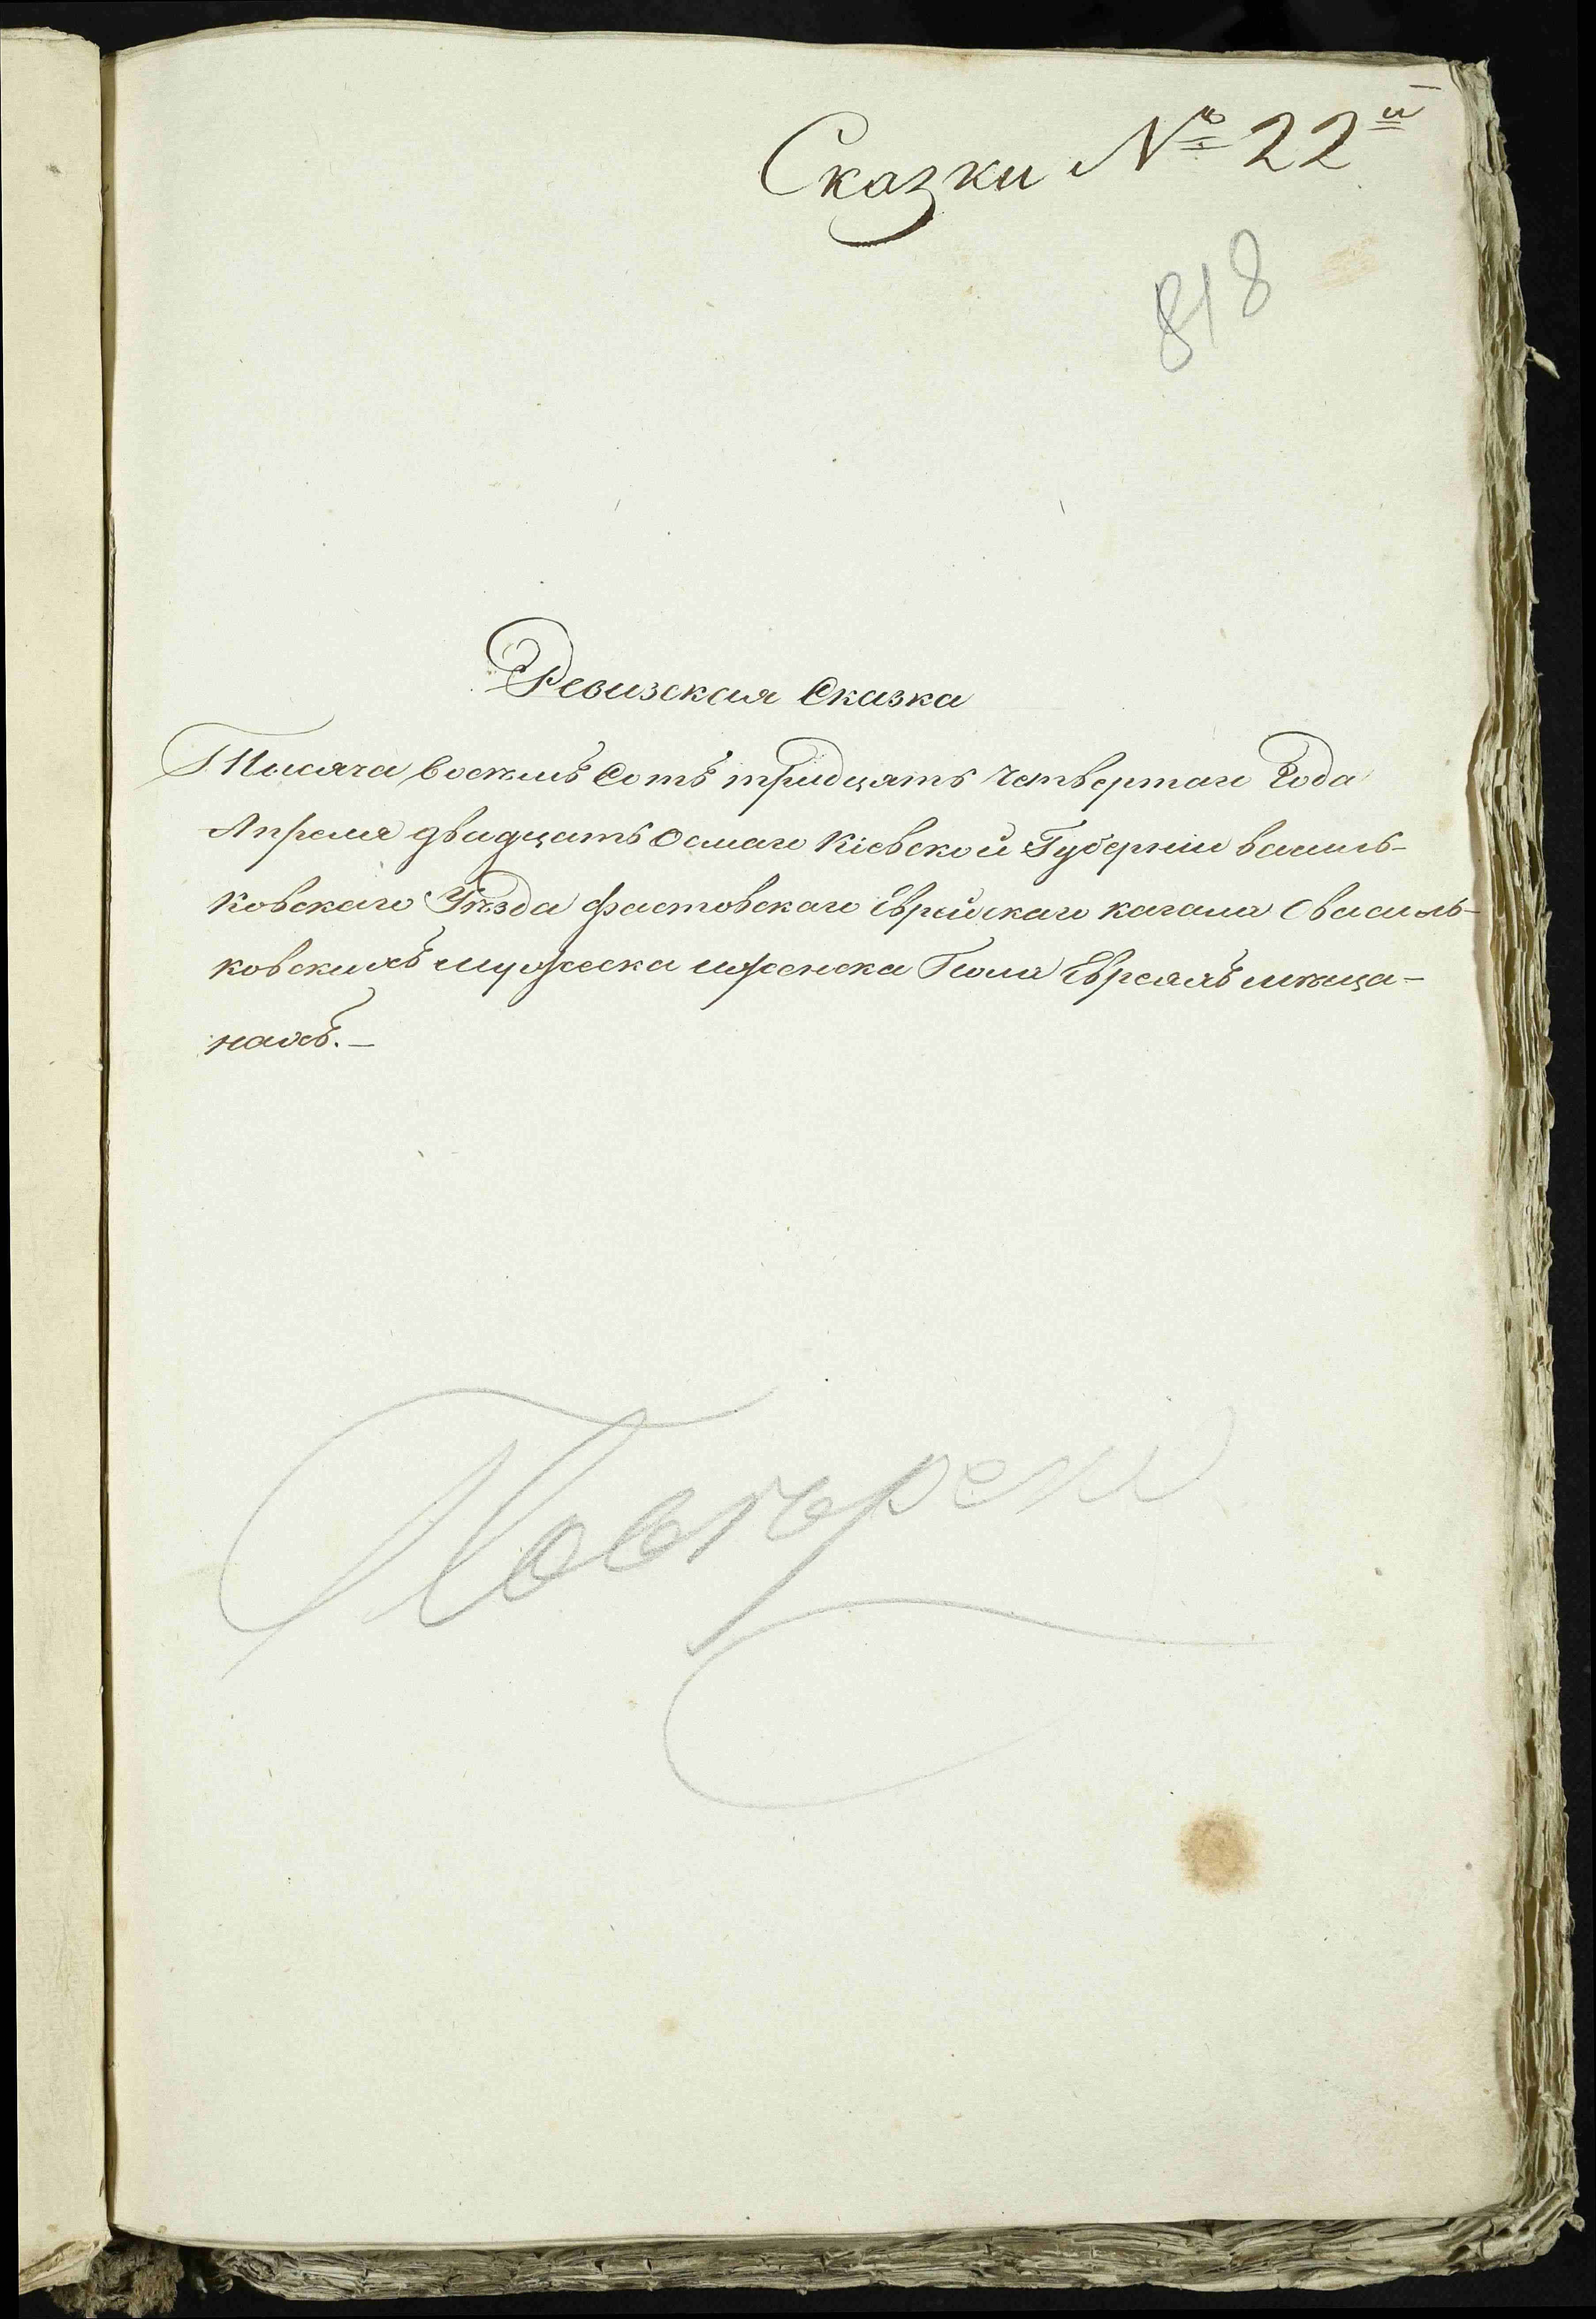 Сказки № 22й
818
Ревизская Сказка
Тысяча восемь Сотъ тридцать четвертаго Года
Апреля двадцать осмаго Кіевской Губерніи василь-
ковскаго Уѣзда фастовскаго Еврейскаго кагала О василь-
ковскихъ мужеска и женска Пола Евреяхъ мѣща-
нахъ.-
Повѣрени